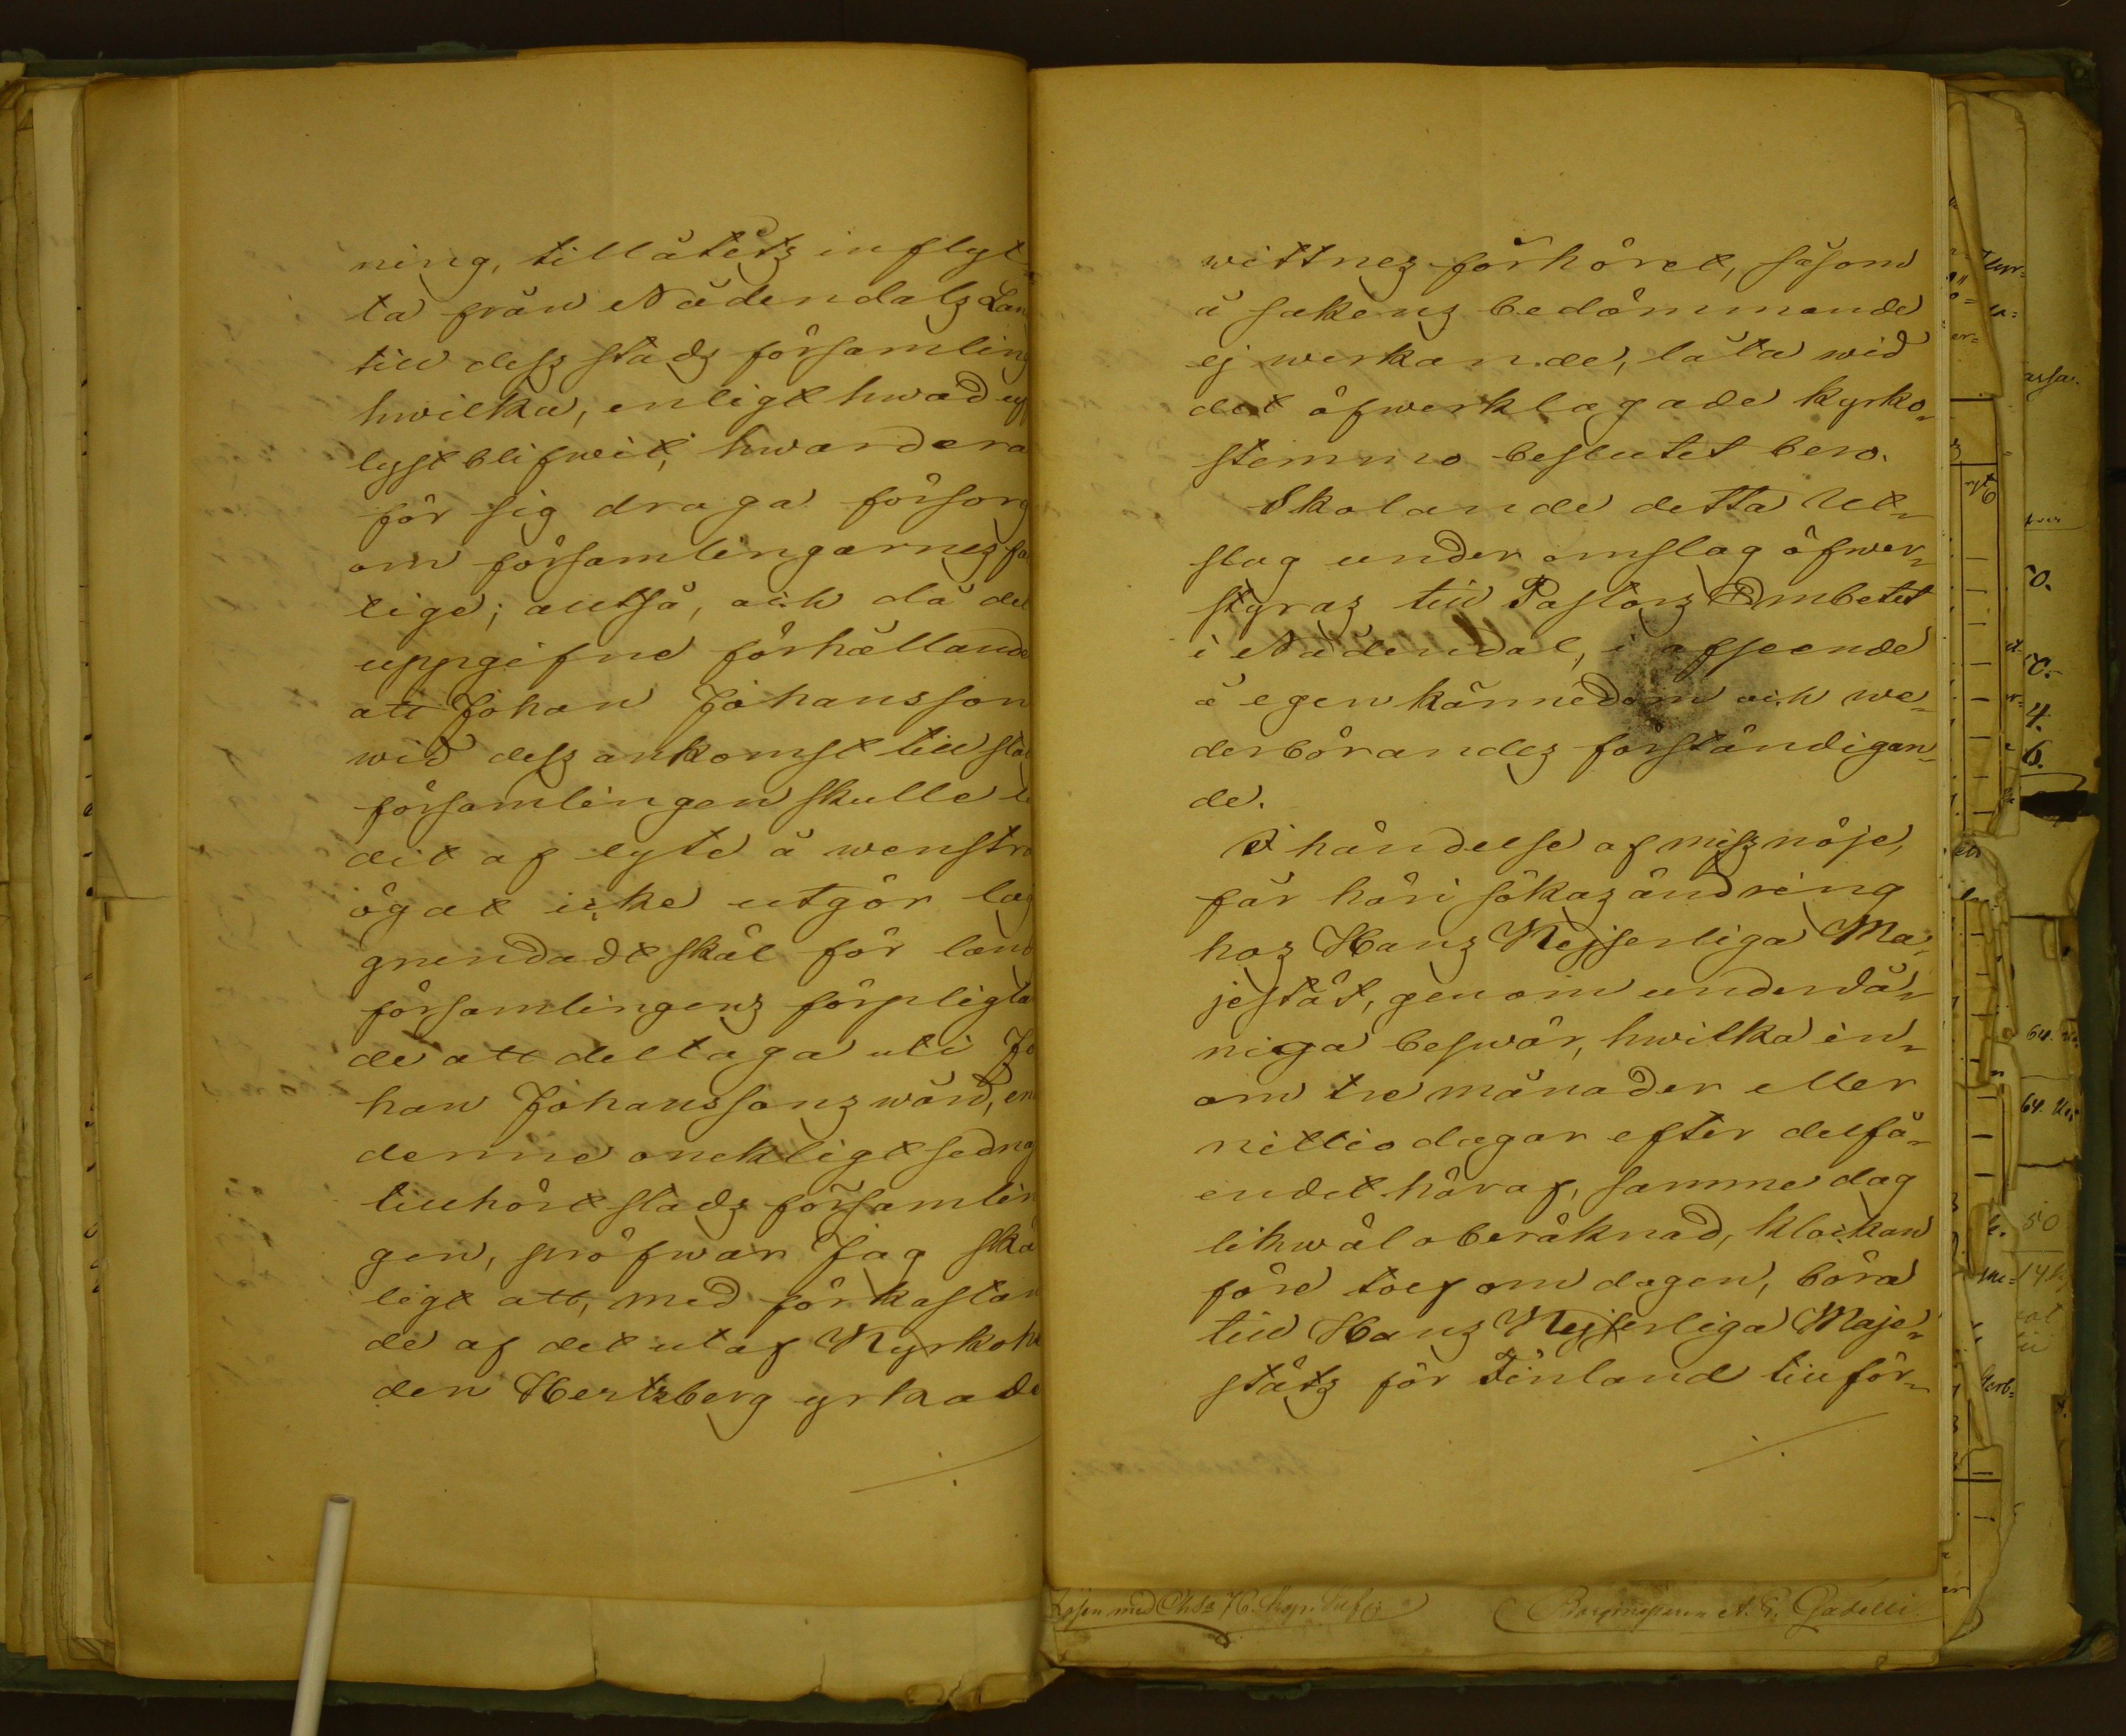 ning, tillåtits inflyt-
ta från Nådendals Lan
till dess stads församling
hwilka, enligt hwad up
lyst blifwit, hwardera
för sig draga försorg
om församlingarnes fat
tige; alltså, och då det
uppgifne förhållande
att Johan Johansson
wid dess ankomst till stad
församlingen skulle li
dit af lyte å wenstra
ögat icke utgör lag
grundadt skäl för land
församlingens förpligtan
de att deltaga uti Jo
han Johanssons wård, en
denne oneklight sednast
tillhört stads församlin
gen, pröfwar Jag skä
ligt att, med förkastan
de af det utaf Kyrkohe
den Hertzberg yrkade
wittnes förhöret, såsom
å sakens bedömmande
ej werkande, låta wid
det öfwerklagade kyrko-
stemmo beslutet bero.
Skolande detta Ut-
slag under omslag öfwer-
styras till Pastors Embetet
i Nådendal, i afseende
å egen kännedom och we-
derbörandes förständigan-
de.
I händelse af missnöje,
får häri sökas ändring
hos Hans Kejserliga Ma-
jestät, genom underdå-
niga beswär, hwilka in-
om tre månader eller
nittio dagar efter delfå-
endet häraf, samma dag
likwäl oberäknad, klockan
före tolf om dagen, böra
till Hans Kejserliga Maje-
stäts för Finland tillför-